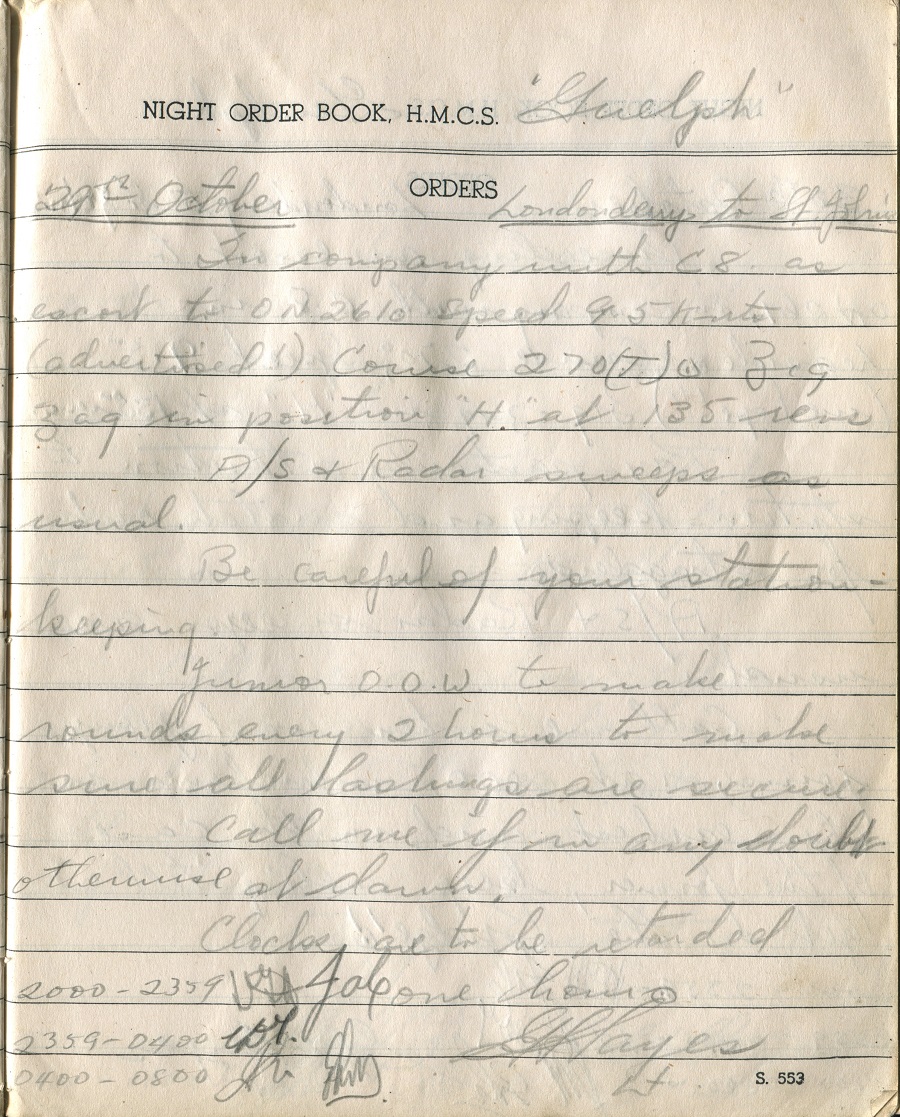 NIGHT ORDER BOOK, H.M.C.S. "Guelph"
ORDERS
October Londonderry to St. John's
In company with C 8. as
escort to O.N. 261. Speed 9.5 knots
(advertised!) Course 270(T) Zig
Zag in position "H." at 135 revs
A/S & Radar sweeps as
usual.
Be careful of your station-
keeping
Junior O.O.W. to make
rounds every 2 hours to make
sure all lashings are secure.
Call me if in any doubt
otherwise at dawn.
Clocks are to be retarded
2000 - 2359 one hour
2359 - 0400 GHHayes
0400 - 0800 Lt
S. 553